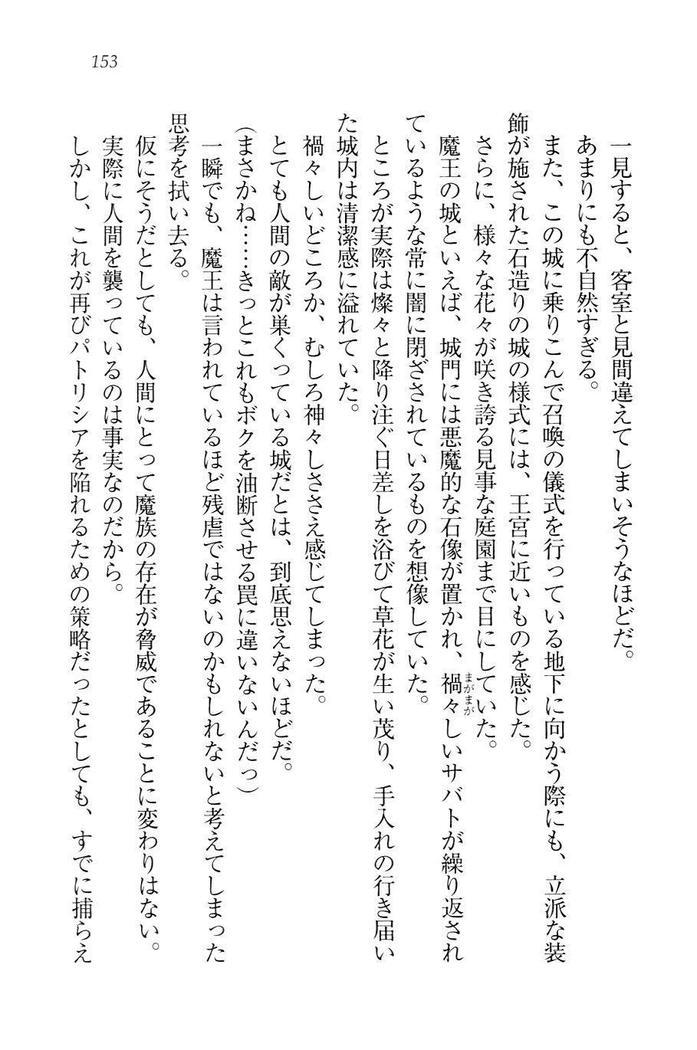 153
一見すると、客室と見間違えてしまいそうなほどだ。
あまりにも不自然すぎる。
また、この城に乗りこんで召喚の儀式を行っている地下に向かう際にも、立派な装
飾が施された石造りの城の様式には、王宮に近いものを感じた。
さらに、様々な花々が咲き誇る見事な庭園まで目にしていた。
魔王の城といえば、城門には悪魔的な石像が置かれ、禍々しいサバトが繰り返され
まがまが
ているような常に闇に閉ざされているものを想像していた。
ところが実際は燦々と降り注ぐ日差しを浴びて草花が生い茂り、手入れの行き届い
た城内は清潔感に溢れていた。
禍々しいどころか、むしろ神々しささえ感じてしまった。
とても人間の敵が巣くっている城だとは、到底思えないほどだ。
(まさかね……きっとこれもボクを油断させる罠に違いないんだっ)
一瞬でも、魔王は言われているほど残虐ではないのかもしれないと考えてしまった
思考を拭い去る。
仮にそうだとしても、人間にとって魔族の存在が脅威であることに変わりはない。
実際に人間を襲っているのは事実なのだから。
しかし、これが再びパトリシアを陥れるための策略だったとしても、すでに捕らえ